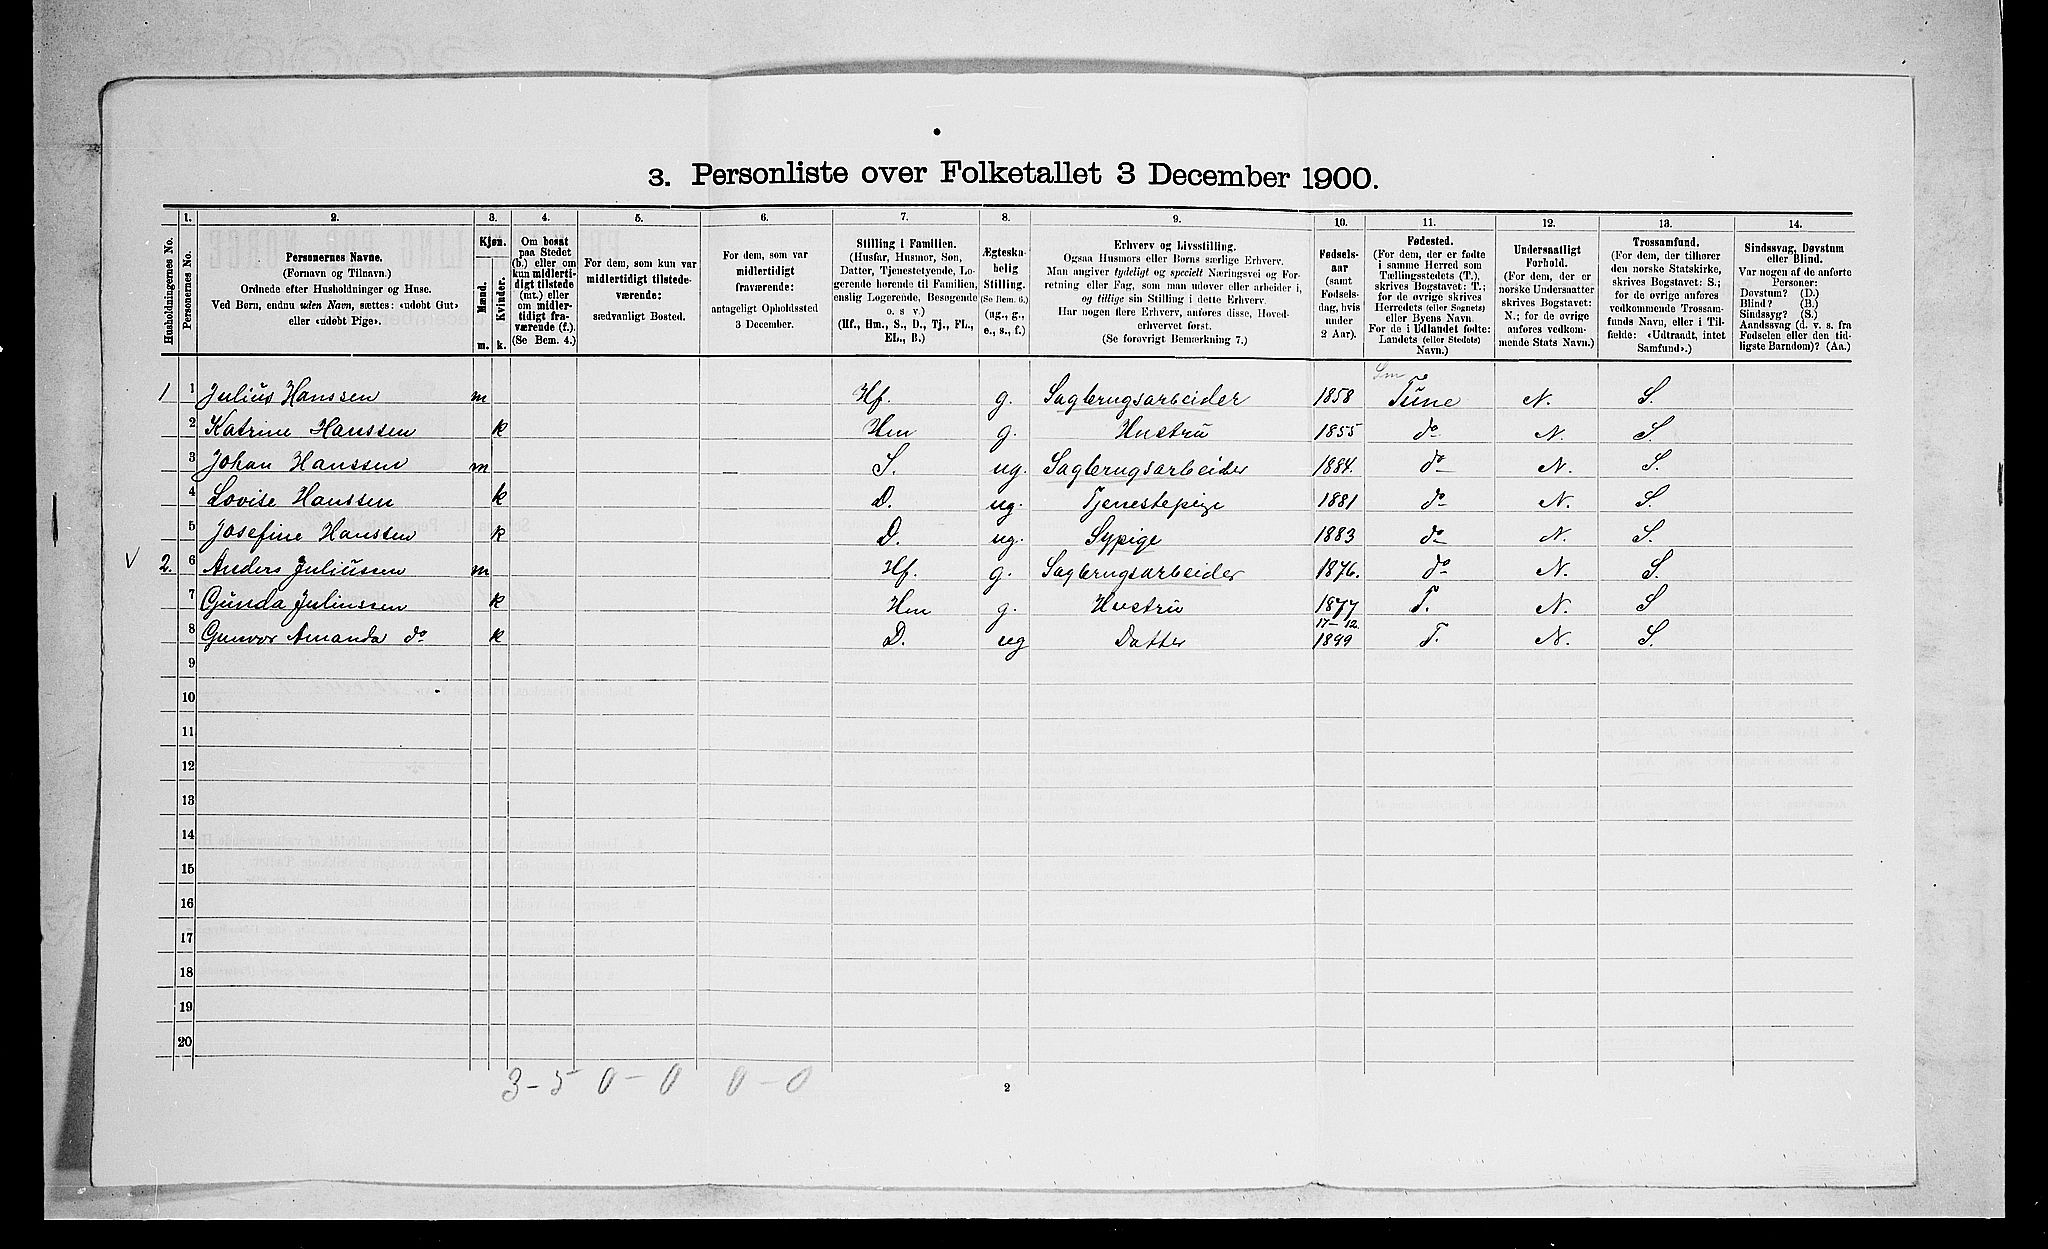 3. Personliste over Folketallet 3 December 1900.
1. 2. 3. 4. 5. 6. 7. 8. 9. 10. 11. 12. 13. 14.
Husholdningernes No.
Personernes No.
Personernes Navne.
(Fornavn og Tilnavn.)
Ordnede efter Husholdninger og Huse.
Ved Børn, endnu uden Navn, sættes: «udøbt Gut»
eller «udøbt Pige».
Kjøn.
Mænd.
Kvinder.
m. k.
Om bosat
paa Stedet
(b.) eller om
kun midlerti-
digt tilstede
(mt.) eller
om midler-
tidigt fra-
værende (f.).
(Se Bem. 4.)
For dem, som kun var
midlertidigt tilstede-
værende:
sædvanligt Bosted.
For dem, som var
midlertidigt
fraværende:
antageligt Opholdssted
3 December.
Stilling i Familien.
(Husfar, Husmor, Søn,
Datter, Tjenestetyende, Lo-
gerende hørende til Familien,
enslig Logerende, Besøgende
o. s. v.)
(Hf., Hm., S., D., Tj., FL.,
EL., B.)
Ægteska-
belig
Stilling.
(Se Bem. 6.)
(ug., g.,
e., s., f.)
Erhverv og Livsstilling.
Ogsaa Husmors eller Børns særlige Erhverv.
Man angiver tydeligt og specielt Næringsvei og For-
retning eller Fag, som man udøver eller arbeider i,
og tillige sin Stilling i dette Erhverv.
Har nogen flere Erhverv, anføres disse, Hoved-
erhvervet først.
(Se forøvrigt Bemerkning 7.)
Fødsels-
aar
(samt
Fødsels-
dag, hvis
under
2 Aar).
Fødested.
(For dem, der er fødte
i samme Herred som
Tællingsstedets (T.),
skrives Bogstavet: T.;
for de øvrige skrives
Herredets (eller Sognets)
eller Byens Navn.
For de i Udlandet fødte:
Landets (eller Stedets)
Navn.)
Undersaatligt
Forhold.
(For dem, der er
norske Undersaatter
skrives Bogstavet:
N.; for de øvrige
anføres vedkom-
mende Stats Navn.)
Trossamfund.
(For dem, der tilhører
den norske Statskirke,
skrives Bogstavet: S.;
for de øvrige anføres
vedkommende Trossam-
funds Navn, eller i Til-
fælde: «Udtraadt, intet
Samfund».)
Sindssvag, Døvstum
eller Blind.
Var nogen af de anførte
Personer:
Døvstum? (D.)
Blind? (B.)
Sindssyg? (S.)
Aandssvag (d. v. s. fra
Fødselen eller den tid-
ligste Barndom)? (Aa.)
1 1 Julius Hanssen m Hf. g. Sagbrugsarbeider 1858 Tune N. S.
2 Katrine Hanssen k Hm g. Hustru 1855 do N. S.
3 Johan Hanssen m – S. ug. Sagbrugsarbeider 1884. do N. S.
4 Lovise Hanssen k D. ug. Tjenestepige 1881 do N. S.
5 Josefine Hanssen k D. ug. Sypige 1883 do N. S.
V 2. 6 Anders Juliussen m Hf. g. Sagbrugsarbeider 1876. do N. S.
7 Gunda Juliussen k Hm g. Hustru 1877 T. N. S
8 Gunvor Amanda do k D. ug Datter 17–12. 1899 T. N. S.
9
10
11
12
13
14
15
16
17
18
19
20
3 – 5 0 – 0 0 – 0
2